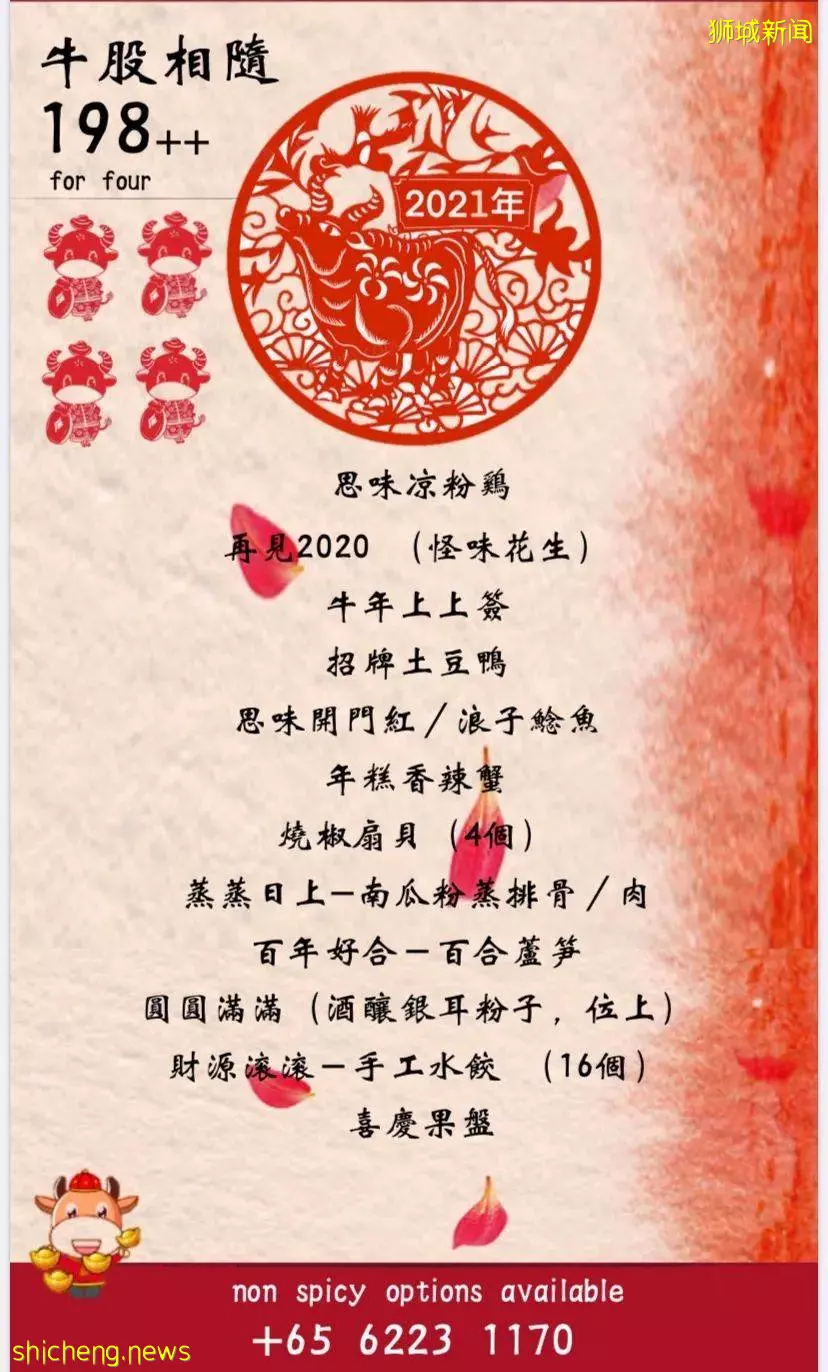 狮城新闻
牛股相隨
198++
for four
2021年
思味凉粉鷄
再見2020 （怪味花生）
牛年上上簽
招牌土豆鴨
思味開門紅／浪子鯰魚
年糕香辣蟹
燒椒扇貝（4個）
蒸蒸日上－南瓜粉蒸排骨／肉
百年好合－百合蘆笋
圓圓滿滿（酒釀銀耳粉子，位上）
財源滚滚－手工水餃 （16個）
喜慶果盤
non spicy options available
+65 6223 1170
shicheng.news